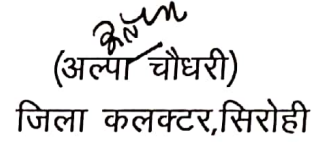 (अल्पा चौधरी)
जिला कलक्टर,सिरोही